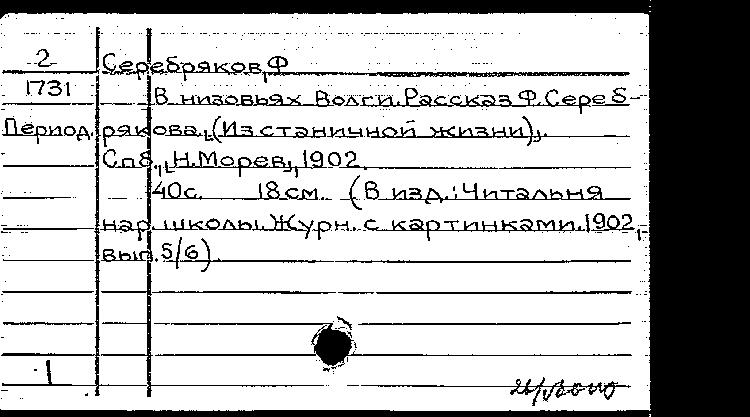 2 Серебряков, Ф
1731 В низовьях Волги. Рассказ Ф. Сереб-
Период. рякова. [(Из станичной жизни)].
Спб., [Н. Морев], 1902.
40с. 18см. (В изд.: Читальня
нар. школы. Журн. с картинками. 1902,
вып. 5/6).
1